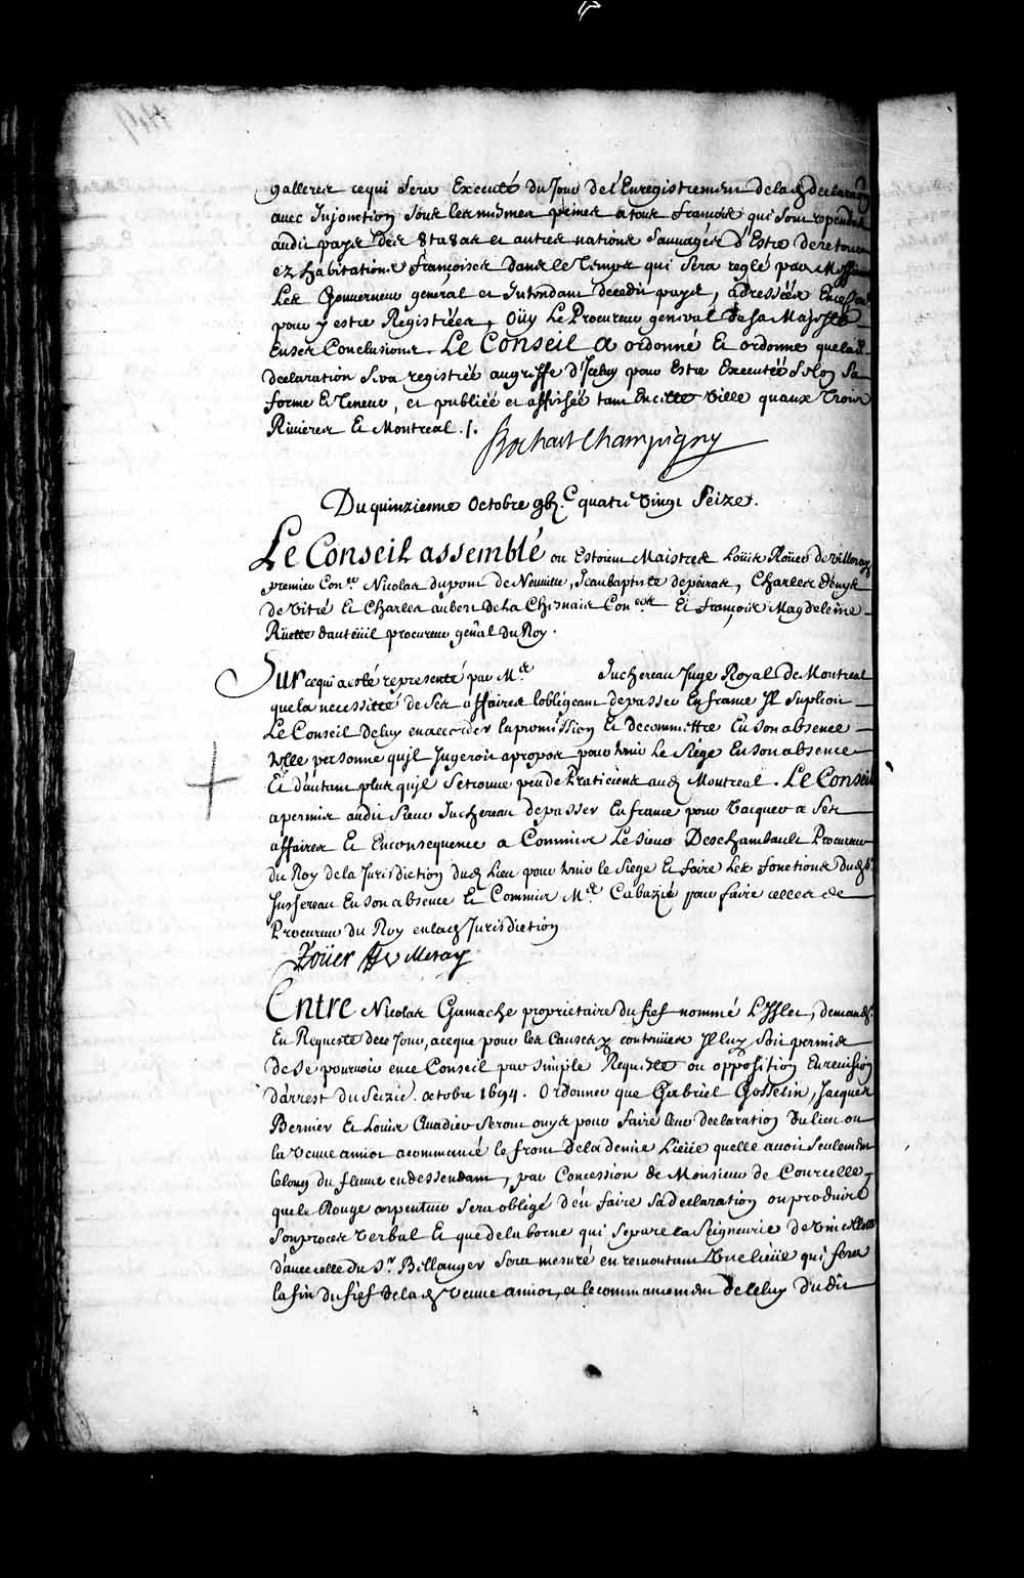 galleres cequi sera Executé du Jour del'Enregistrement delad declaraon
auec Injonction sous les mesmes peines a tous francois qui sont repandus
audit pays des 8ta8as et autres nations sauuages d'Estre de retour
ez habitations françoises dans le temps qui sera reglé par Messieurs
Les Gouuerneur general et Intendant decedit pays, adresséés En
pour y estre Registréés, Oüy Le Procureur general de sa Majesté
En ses Conclusions. Le Conseil a ordonné Et ordonne que lad.
declaration sera registréé augreffe d'Iceluy pour Estre Executéé selon sa
forme Et teneur, et publiéé et affichéé tant En cette Ville quaux Trois
Riuieres Et Montreal ./.
Bochart Champigny
Du quinziesme Octobre gbjC quatre vingt seize.
Le Conseil assemblé ou Estoient Maistres Loüis Roüer de Villeray
premier Conser Nicolas dupont de Neuuille, Jean baptiste depeiras, Charles denys
de Vitré Et Charles aubert de la Chesnais Coners Et françois Magdeleine
Rüette dauteüil procureur genal du Roy.
Sur cequi aesté representé par Me Juchereau Juge Royal de Montreal
que la necessitté de ses affaires l'obligeant depasser En france Il suplioit
Le Conseil deluy en accorder la permission Et decommettre En son absence
telle personne quil Jugeroit apropos pour tenir Le siége En son absence
Et d'autant plus quil se trouue peu de Praticiens aud Montreal. Le Conseil
apermis audit Sieur Juchereau de passer En france pour Vacquer a ses
affaires Et En consequence a Commis Le sieur Deschambault Procureur
du Roy de la Jurisdiction dud Lieu pour tenir le Siege Et faire Les fonctions dud Sr
Juchereau En son absence Et Commis Me Cabazié pour faire celles de
Procureur du Roy en lad Jurisdiction
Roüer de Villeray
Entre Nicolas Gamache proprietaire du fief nommé L'Islet, demandr
En Requeste de ce Jour, aceque pour les Causes y contenües Il luy soit permis
de se pouruoir en ce Conseil par simple Requeste ou opposition En reuision
d'arrest du seizie. octobre 1694. Ordonner que Gabriel Gosselin, Jacques
Bernier Et Louis Quadieu seront ouys pour faire leur declaration du lieu ou
la Veuue amiot acommancé le front dela demie Lieüe quelle auoit seulement
lelong du fleuue en dessendant, par Concession de Monsieur de Courcelle,
que le Rouge arpenteur sera obligé d'en faire sa declaration ou produire
son procez verbal Et que de la borne qui separe la seigneurie de Vincelotte
d'auec celle du Sr. Bellanger sera mesuré en remontant Vne lieüe qui fera
la fin du fief de lad Veuue amiot, et le commancement de celuy dudit